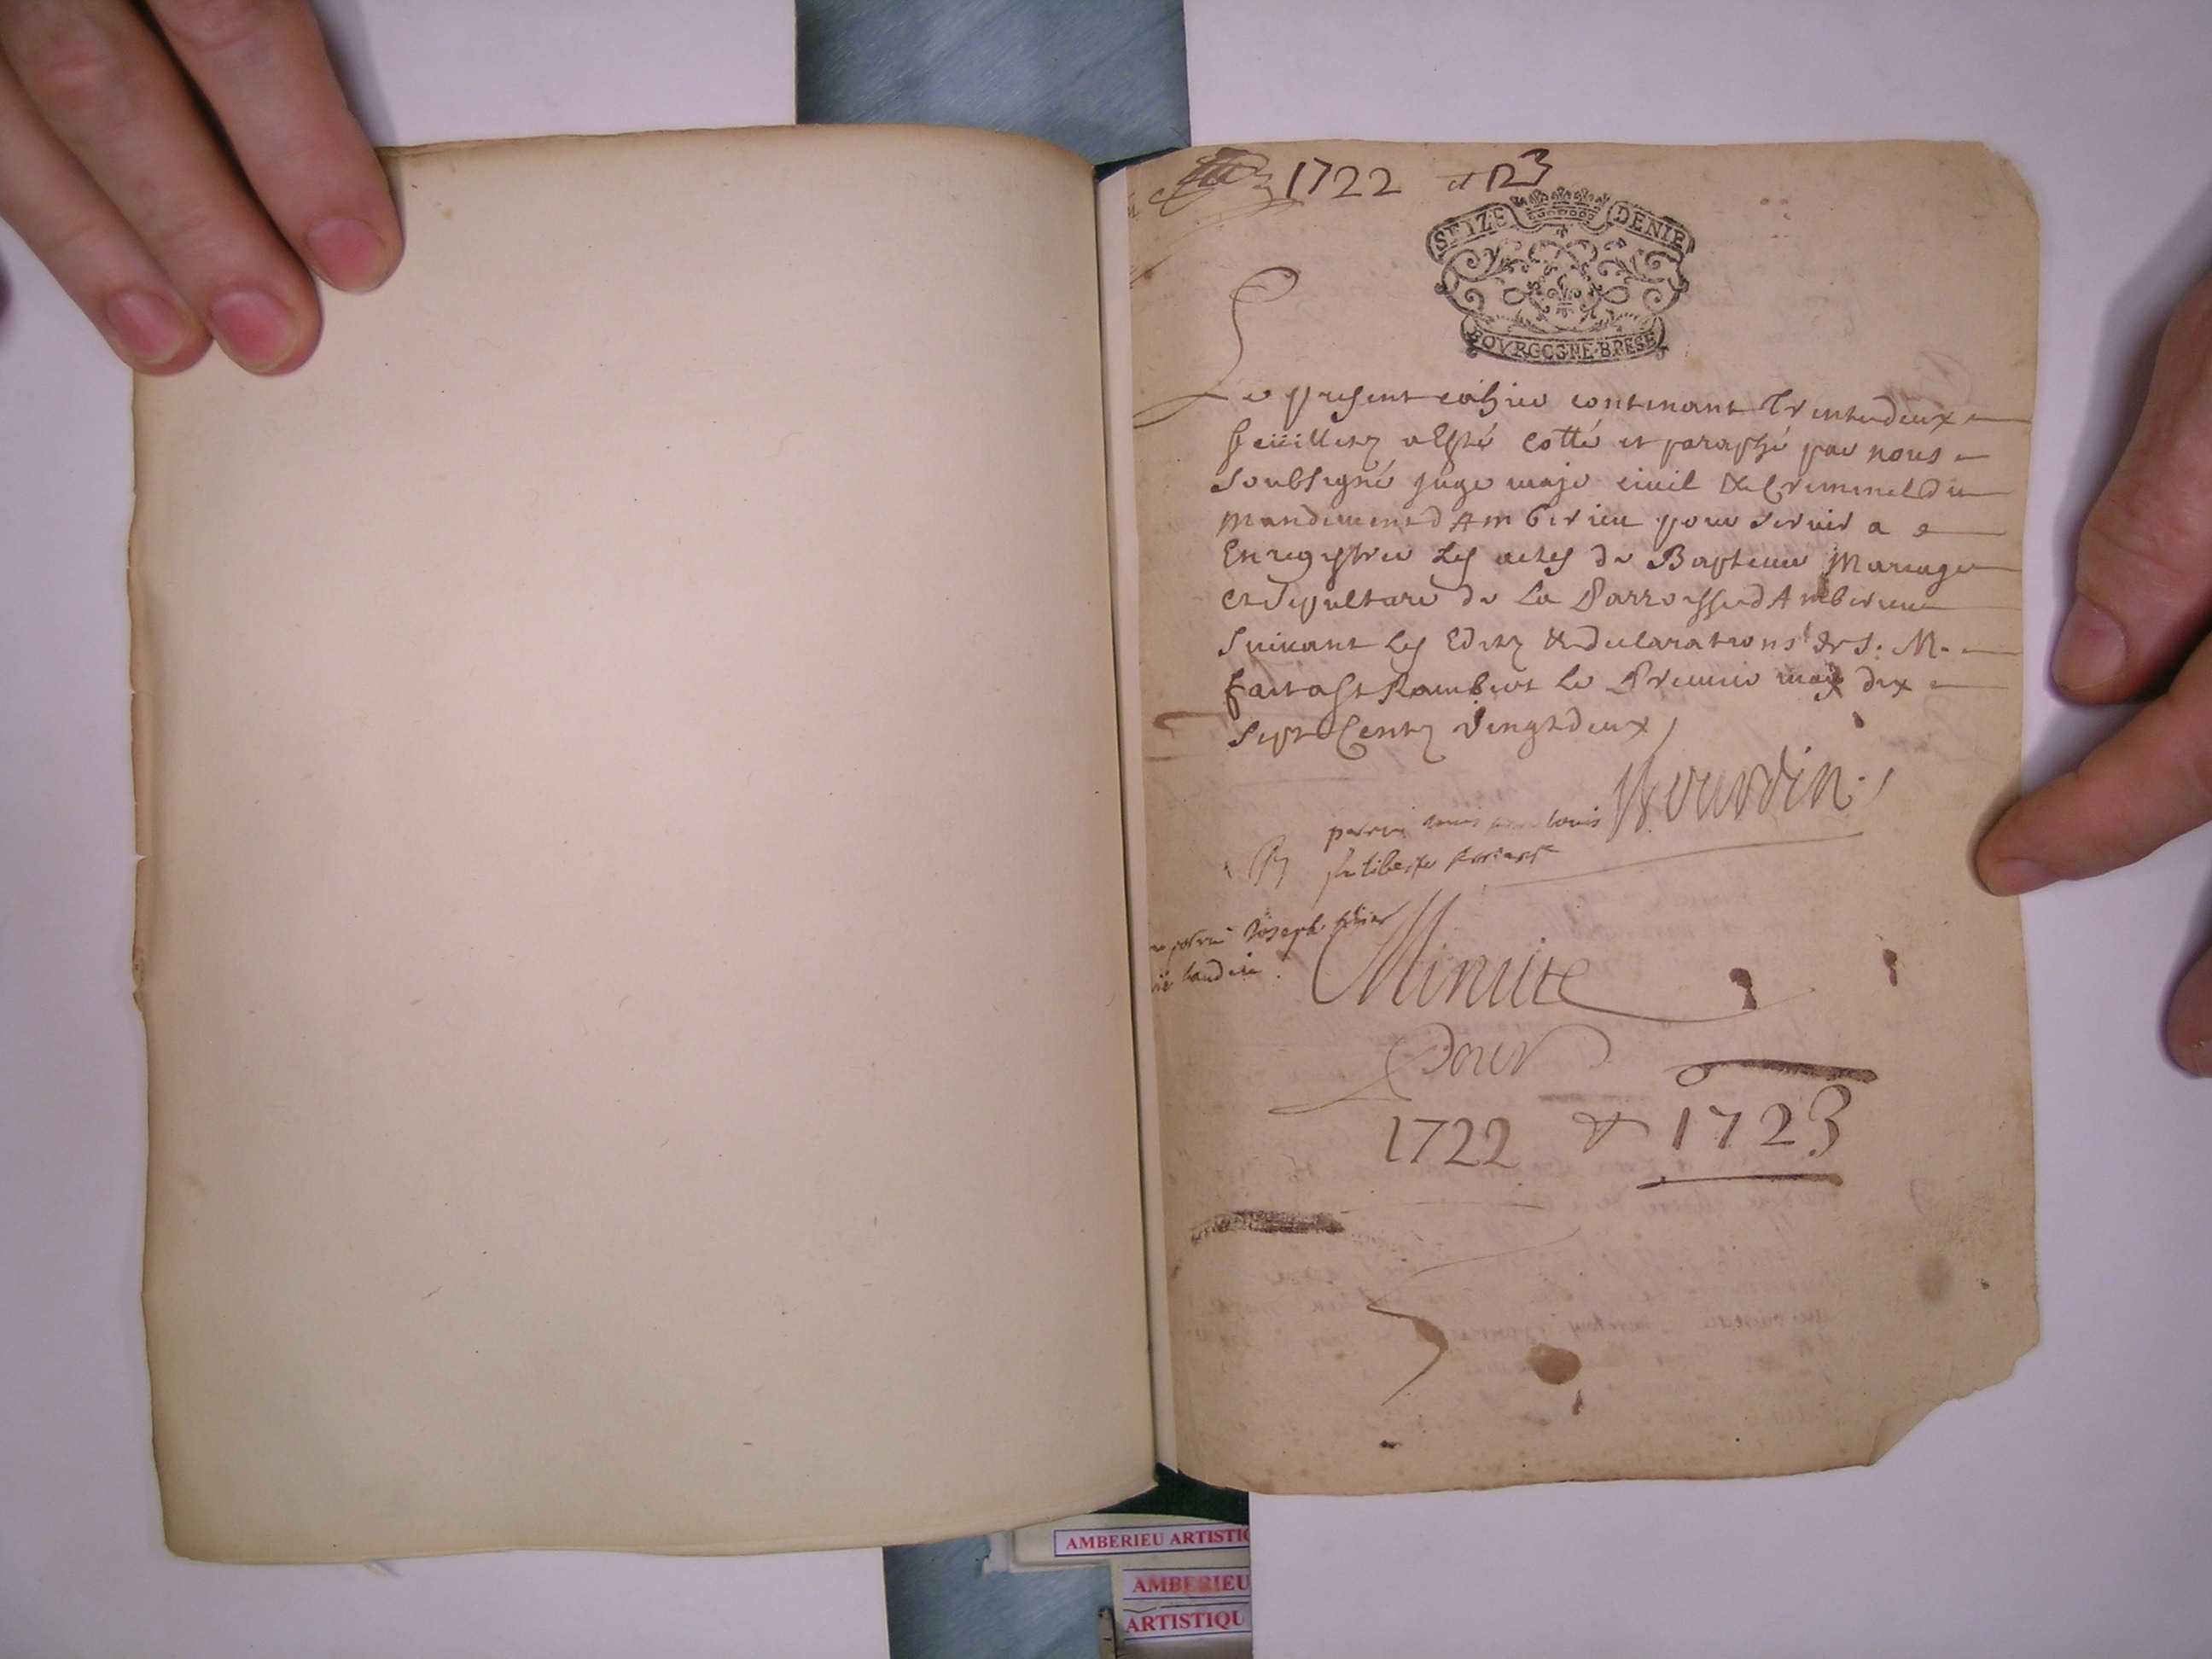 1722 et 1723
SEIZE DENIE
BOVRGOGNE BRESE
Le present cahier contenant Trente deux
feüilletz a Esté Cotté et paraphé par nous
Soubsigné juge maje ciuil & Criminel du
Mandement d'Amberieu pour seruir a
Enregistrer Les actes de Bapteme Mariage
et Sepulture de La Parroisse d'Amberieu
Suiuant Les Editz & declarations de S. M.
Fait a St Rambert Le Premier may dix
Sept Centz Vingt deux
parrin louis
Joseph
Minute
Pour
1722 & 1723
AMBERIEU ARTISTIQ
AMBERIEU
ARTISTIQU